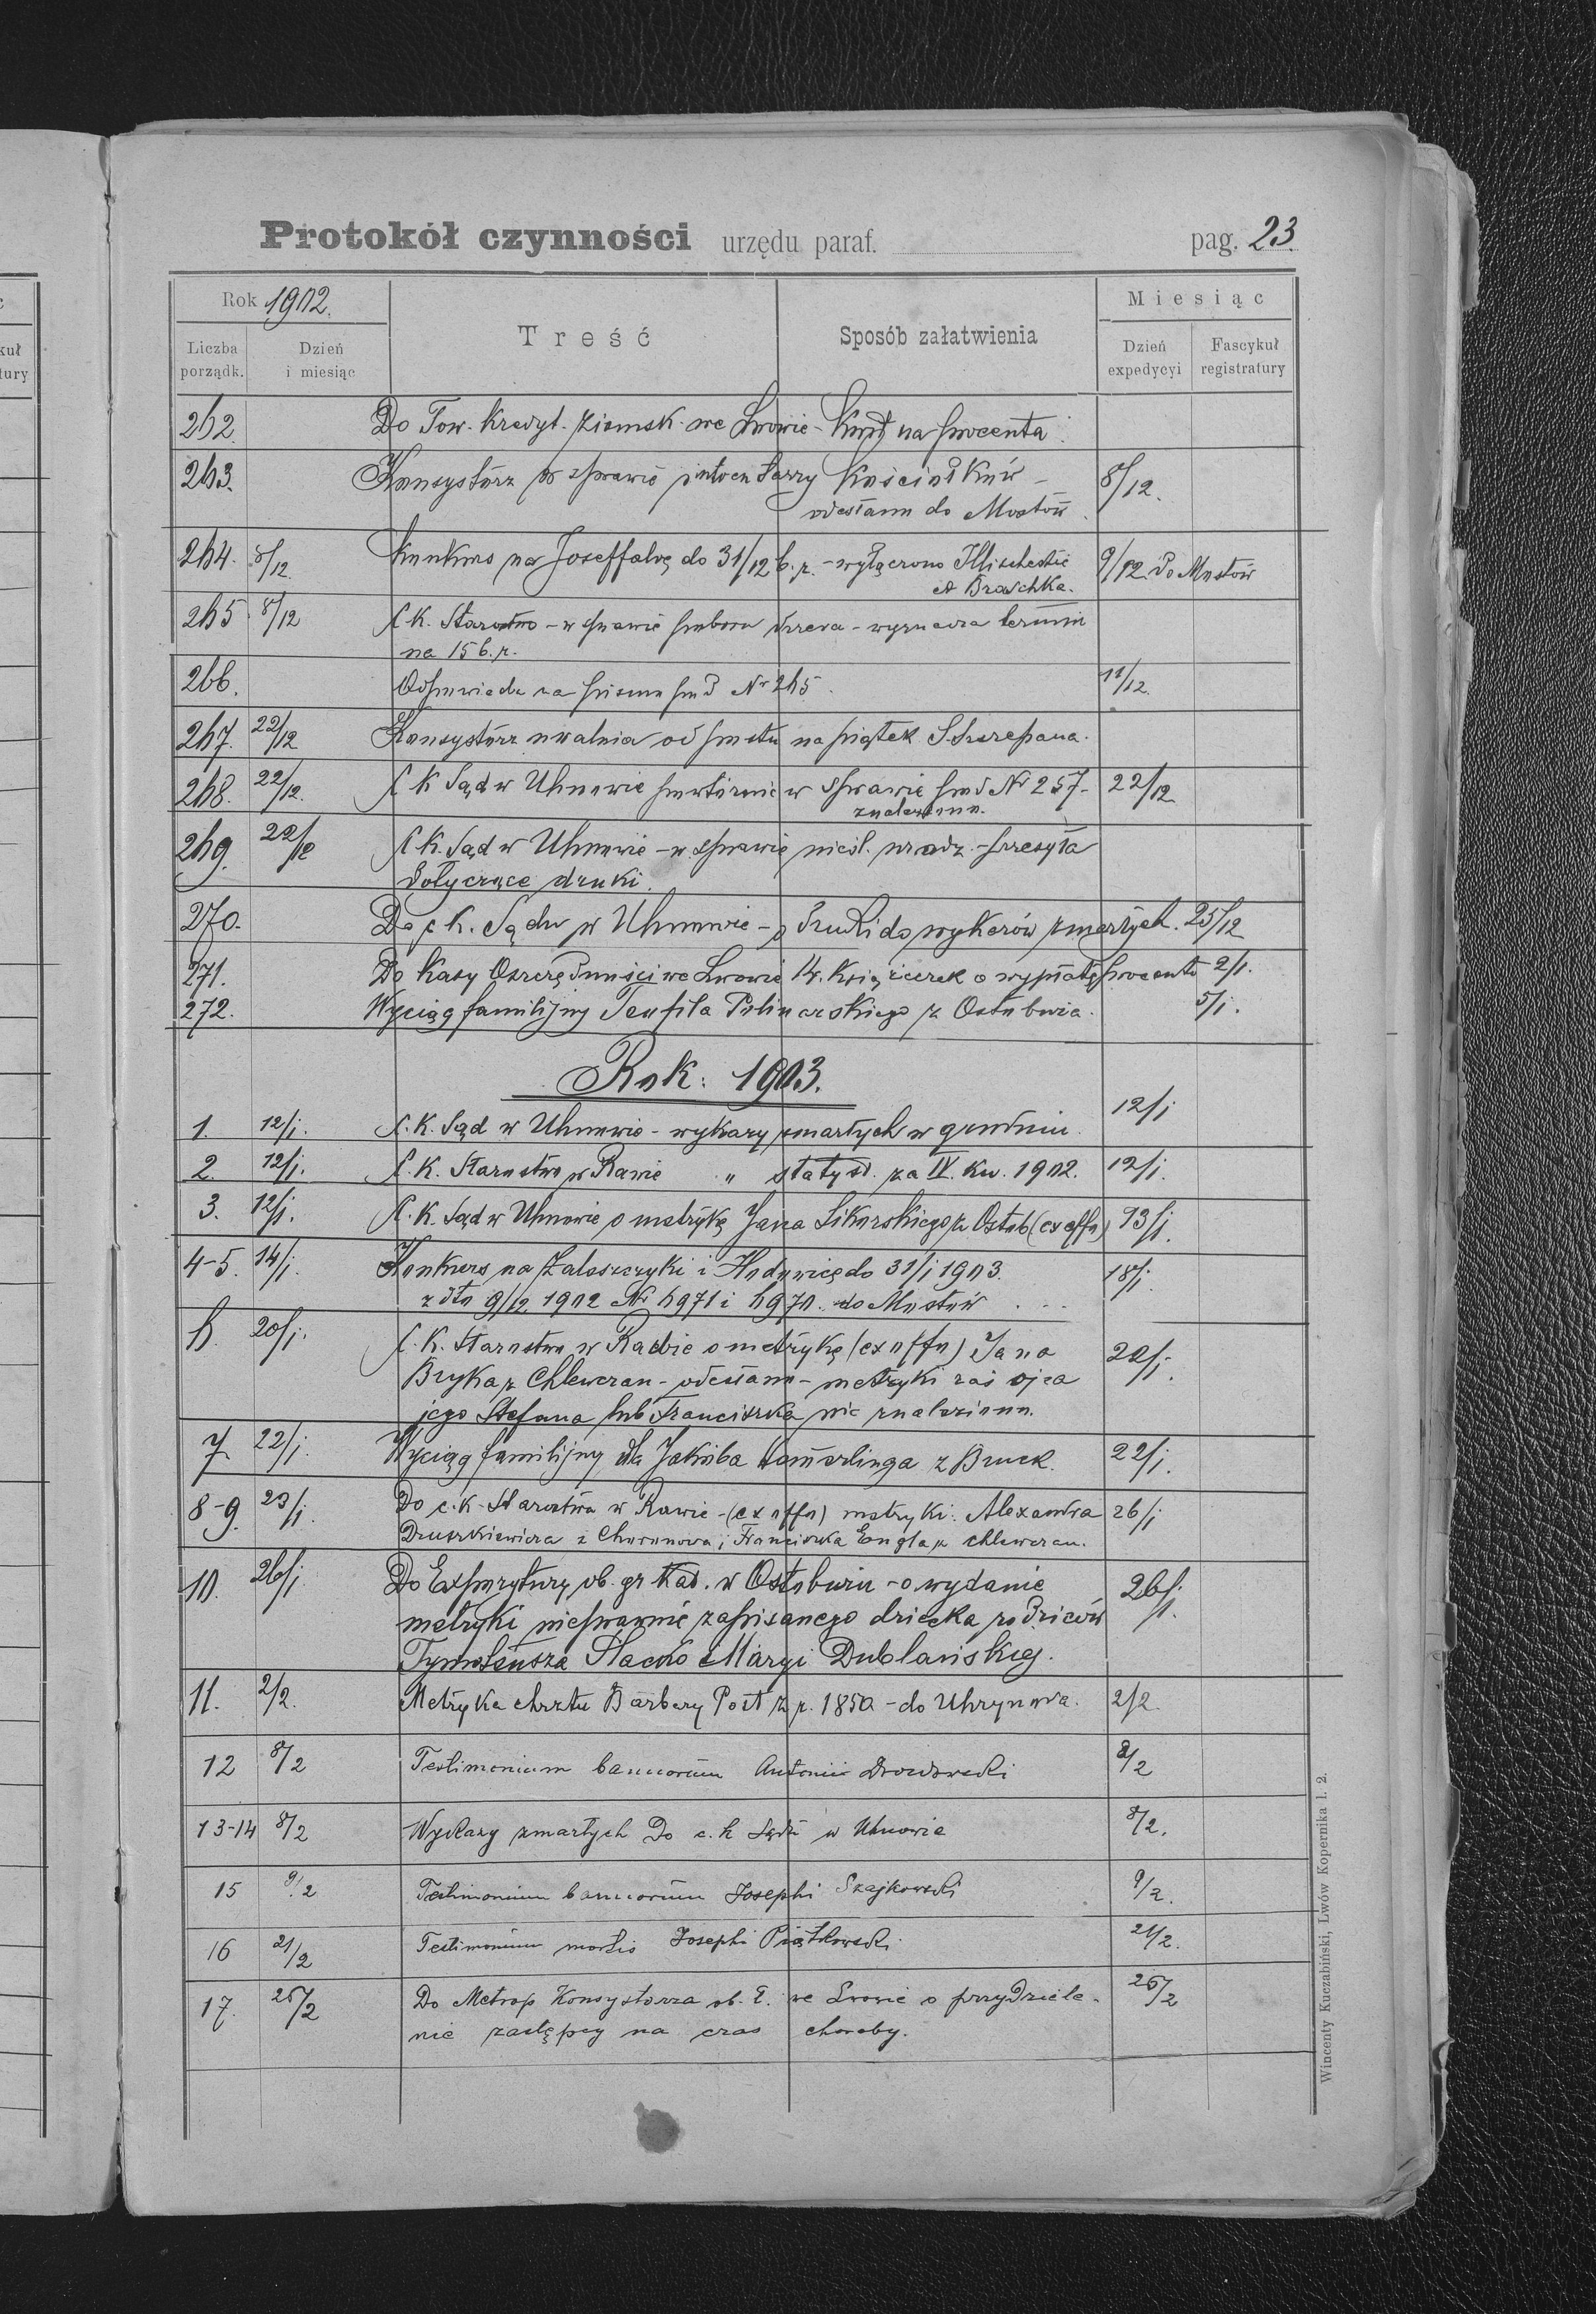 Protokół czynności urzędu paraf. pag. 23.
Rok 1902. Treść Sposób załatwienia Miesiąc
Liczba porządk. Dzień i miesiąc Dzień expedycyi Fascykuł registratury
262. Do Tow. Kredyt. ziemsk. we Lwowie - Kwit na procenta.
263. Konsystorz w sprawie Kościołków - 8/12.
odesłano do Mostów.
264. 8/12. Konkurs na Joseffalvę do 31/12 b. r. - wyłączono Illischestie 9/12. Do Mostów
et Braschka.
265 8/12 C. K. Starostwo - w sprawie poboru drzewa - wyznacza termin
na 15 b. r.
266. Odpowiedź na pismo pod Nr 265. 11/12.
267. 22/12 Konsystorz uwalnia od postu na piątek S. Szczepana.
268. 22/12. C K Sąd w Uhnowie powtórnie w sprawie pod Nr 257. - 22/12
znaleziono.
269. 22/12 C K. Sąd w Uhnowie - w sprawie przesyła
dotyczące druki.
270. Do c k. Sądu w Uhnowie - o druki do wykazów zmarłych. 25/12
271. Do Kasy Oszczędności we Lwowie 14. Książeczek o wypłatę procentu 2/1.
272. Wyciąg familijny Teofila Polinarskiego z Ostobuia. 5/1.
Rok: 1903.
1. 12/1. C. K. Sąd w Uhnowie - wykazy zmarłych w grudniu. 12/1
2. 12/1. C. K. Starostwo w Rawie " statyst. za IV. kw. 1902. 12/1.
3. 12/1. C. K. Sąd w Uhnowie o metrykę Jana Sikorskiego z Ostob (ex offo) 13/1.
4-5. 14/1. Konkurs na Zaleszczyki i Hodowicę do 31/1 1903. 18/1.
z dto 9/12 1902 Nr 6971 i 6970. do Mostów . . .
6. 20/1. C. K. Starostwo w Radzie o metrykę (ex offo) Jana 20/1.
Bryka z Chlewczan - odesłano - metryki zaś ojca
jego Stefana lub Franciszka nie znaleziono.
7 22/1. Wyciąg familijny dla Jakóba Hamerlinga z Bruck. 22/1.
8-9. 23/1. Do c. k. Starostwa w Rawie - (ex offo) metryki: Alexandra 26/1
Druszkiewicza z Choronowa, i Franciszka Engla z Chlewczan.
10. 26/1. Do Expozytury ob. gr kat. w Ostobuiu - o wydanie 26/1.
metryki niesprawnie zapisanego dziecka rodziców
Tymoteusza Slacko i Maryi Dublańskiej.
11. 2/2. Metryka chrztu Barbary Post z r. 1850 - do Uhrynowa. 2/2.
12 8/2 Testimonium bannorum Antonii Drozdowski 8/2
13-14 8/2 Wykazy zmarłych do c. k Sądu w Uhnowie 8/2.
15 9/2 Testimonium bannorum Josephi Szajkowski 9/2.
16 21/2 Testimonium mortis Josephi Piątkowski. 21/2.
17. 25/2 Do Metrop Konsystorza ob. ł. we Lwowie o przydziele- 25/2
nie zastępcy na czas choroby.
Wincenty Kuczabiński, Lwów Kopernika l. 2.